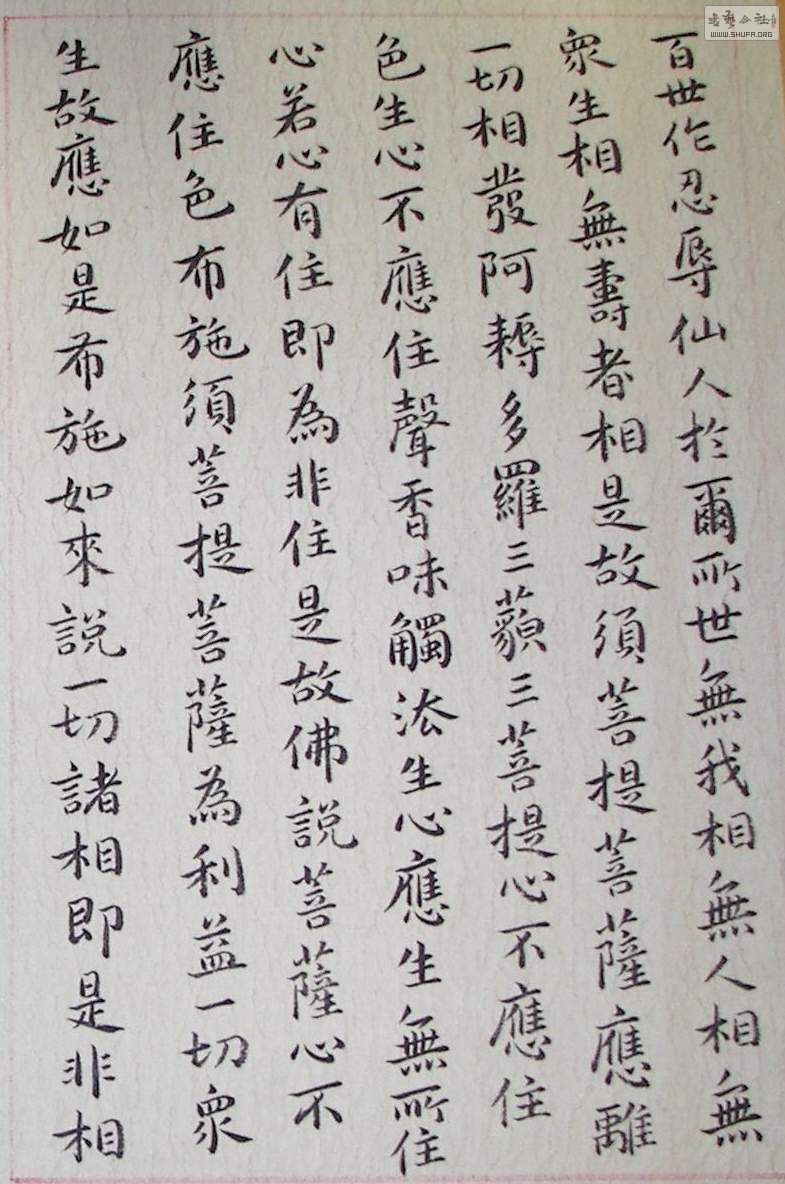 百世作忍辱仙人於爾所世無我相無人相無
衆生相無壽者相是故須菩提菩薩應離
一切相發阿耨多羅三藐三菩提心不應住
色生心不應住聲香味觸法生心應生無所住
心若心有住即為非住是故佛說菩薩心不
應住色布施須菩提菩薩為利益一切衆
生故應如是布施如來說一切諸相即是非相
WWW.SHUFA.ORG